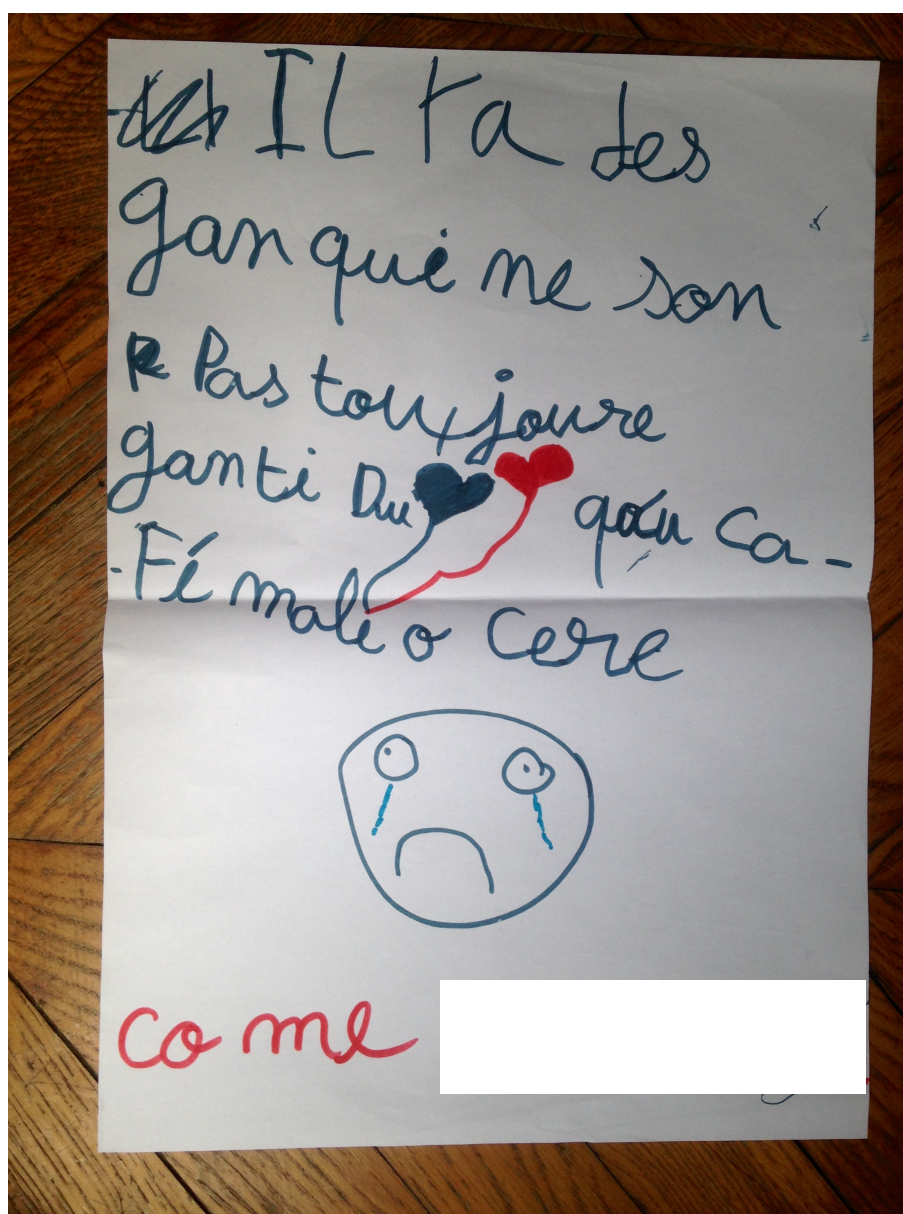 IL ya des
gan qui ne son
Pas toujoure
ganti Du qou ca-
-Fé male o cere
come